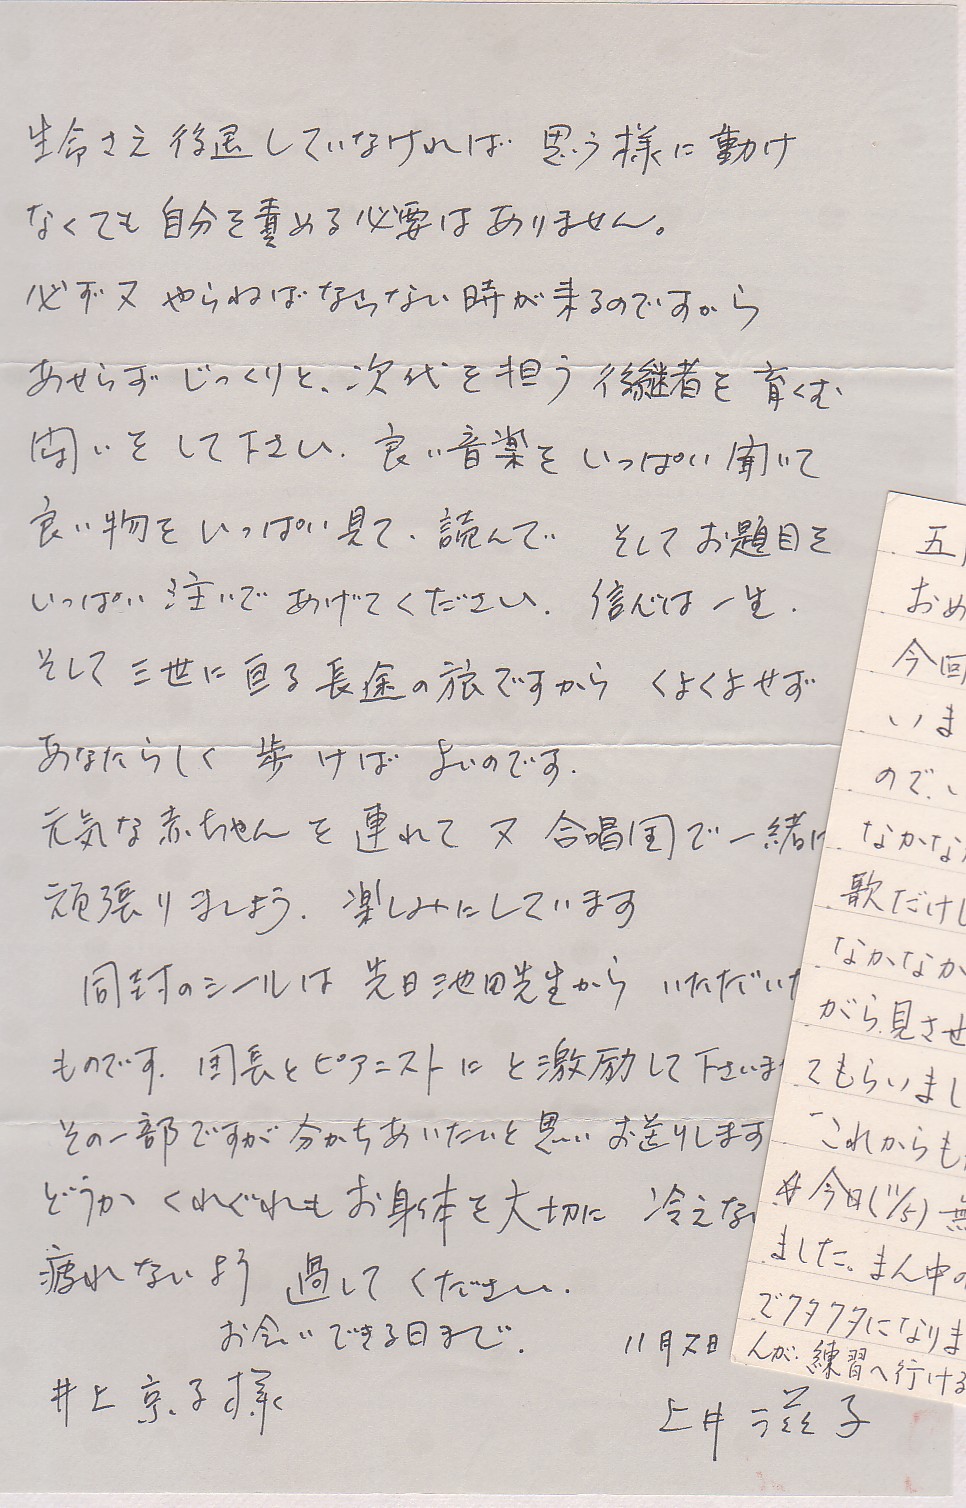 生命さえ後退していなければ 思う様に動け
なくても自分を責める必要はありません。
必ず又 やらねばならない時が来るのですから
あせらず じっくりと、次代を担う後継者を育くむ
闘いをして下さい. 良い音楽をいっぱい聞いて
良い物をいっぱい見て、読んで そしてお題目を
いっぱい注いであげてください. 信心は一生.
そして三世に亘る長途の旅ですから くよくよせず
あなたらしく 歩けば よいのです.
元気な赤ちゃんを連れて 又 合唱団で一緒に
頑張りましょう. 楽しみにしています
同封のシールは 先日池田先生から いただいた
ものです. 団長とピアニストにと激励して下さいま
その一部ですが 分かちあいたいと思い お送りします
どうか くれぐれもお身体を大切に 冷えな
疲れないよう 過してください.
お会いできる日まで. 11月
井上京子様
滋子
五
おめ
今回
いま
ので、い
なかなか
歌だけし
なかなか
がら見させ
てもらいまし
これからも
今日(11/5)無
ました。まん中の
でクタクタになりま
んが、練習へ行ける